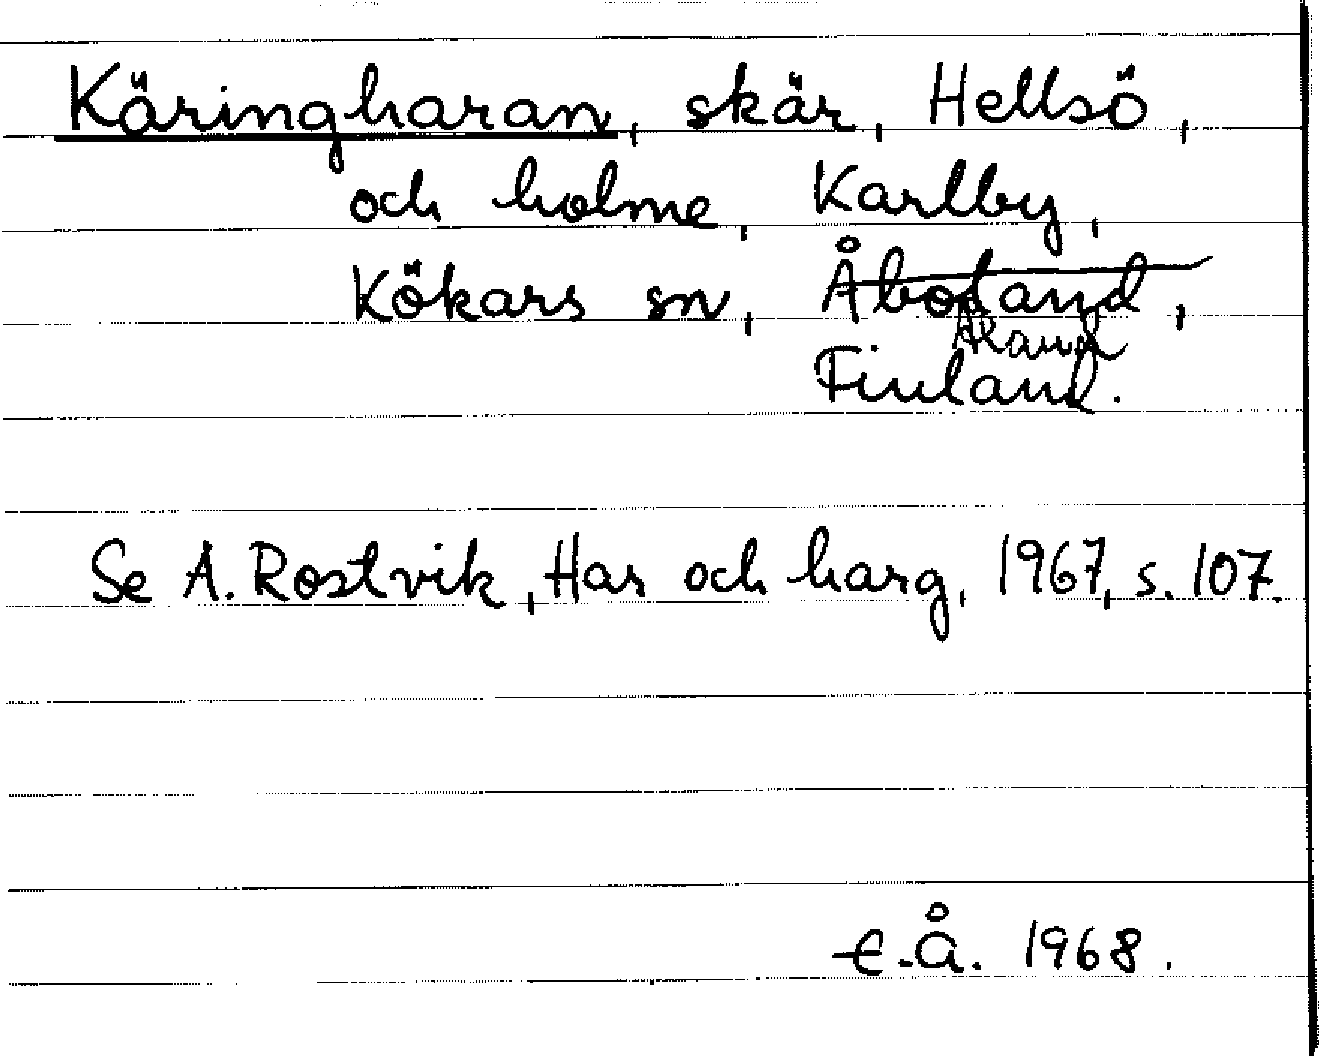 Käringharan, skär, Hellsö,
och holme, Karlby,
Kökars sn, Åboland,
Åland
Finland.
Se A. Rostvik, Har och harg, 1967, s. 107.
E.Å. 1968.